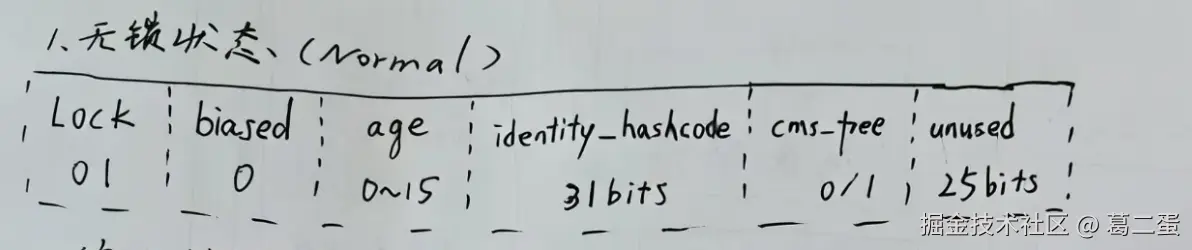 1、无锁状态、(Normal)
Lock biased age identity_hashcode cms_free unused
01 0 0~15 31bits 0/1 25bits
掘金技术社区 @ 葛二蛋